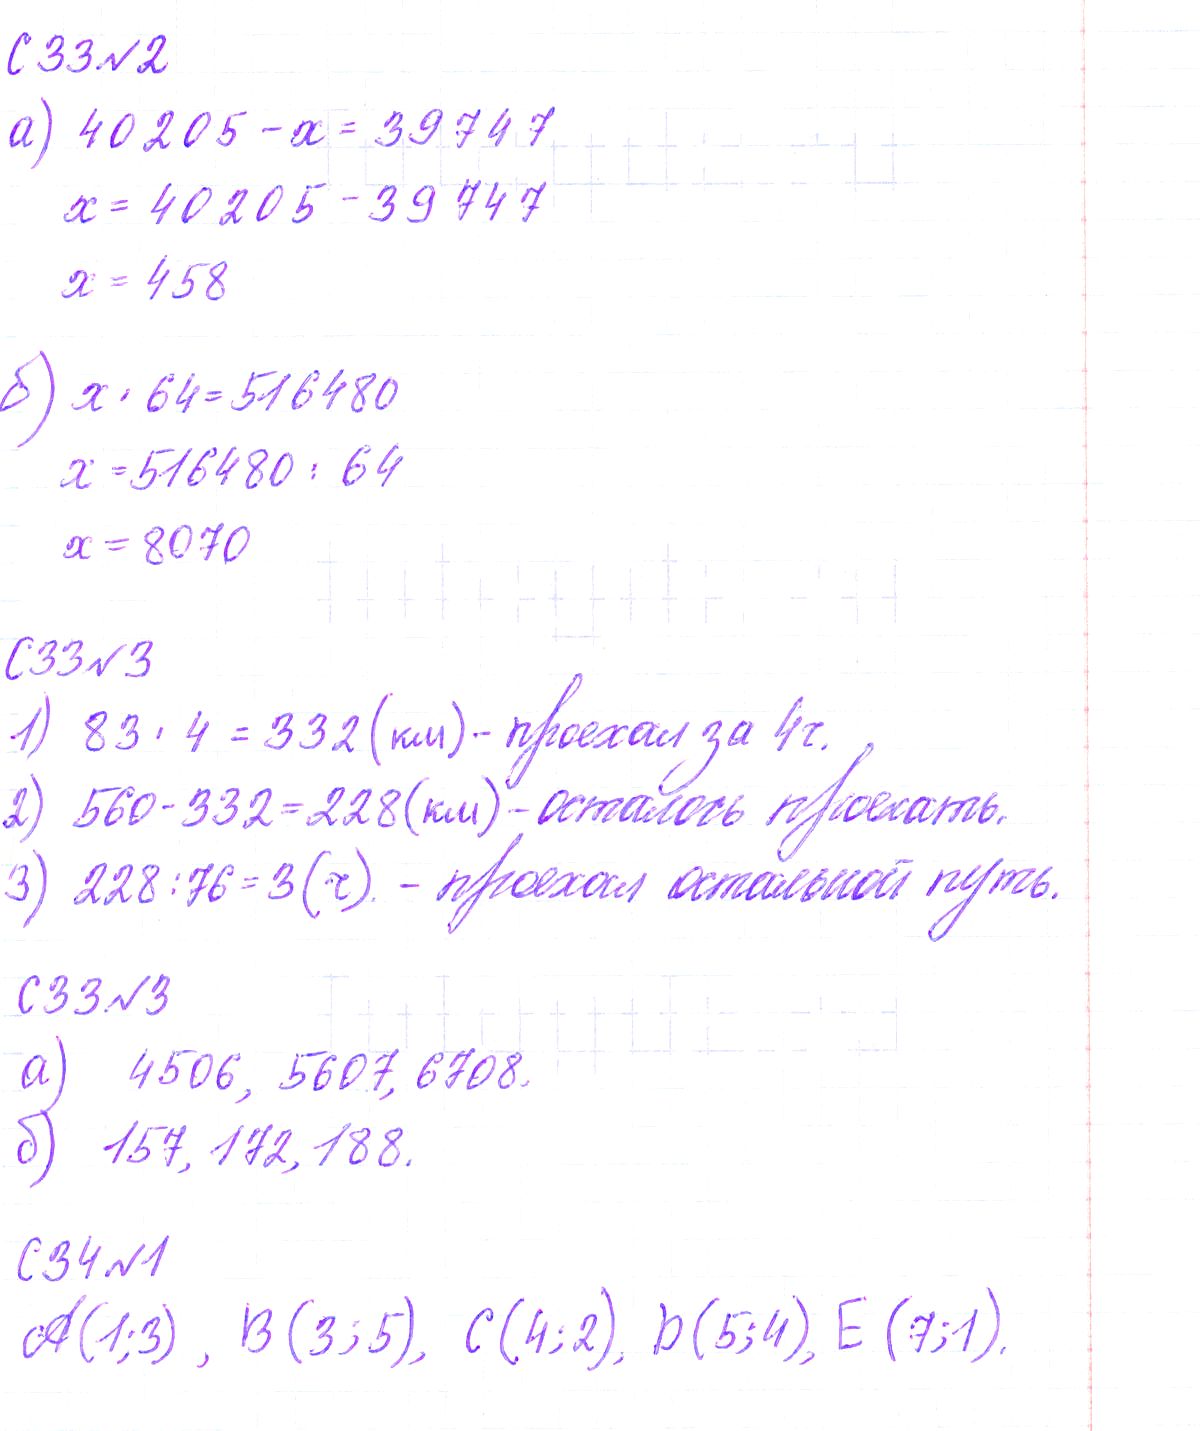 С33 №2
а) 40205 - x = 39747
x = 40205 - 39747
x = 458
б) x · 64 = 516480
x = 516480 : 64
x = 8070
С33 №3
1) 83 · 4 = 332 (км) - проехал за 4ч.
2) 560 - 332 = 228 (км) - осталось проехать.
3) 228 : 76 = 3 (ч). - проехал остальной путь.
С33 №3
а) 4506, 5607, 6708.
б) 157, 172, 188.
С34 №1
A (1;3), B (3;5), C (4;2), D (5;4), E (7;1).